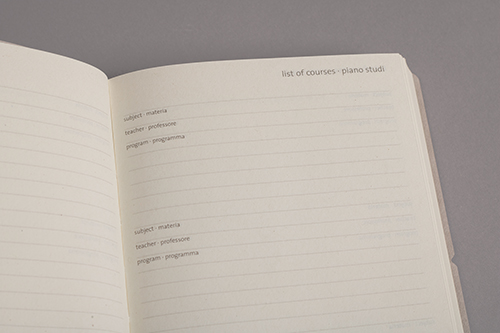 list of courses · piano studi
subject · materia
teacher · professore
program · programma
subject · materia
teacher · professore
program · programma